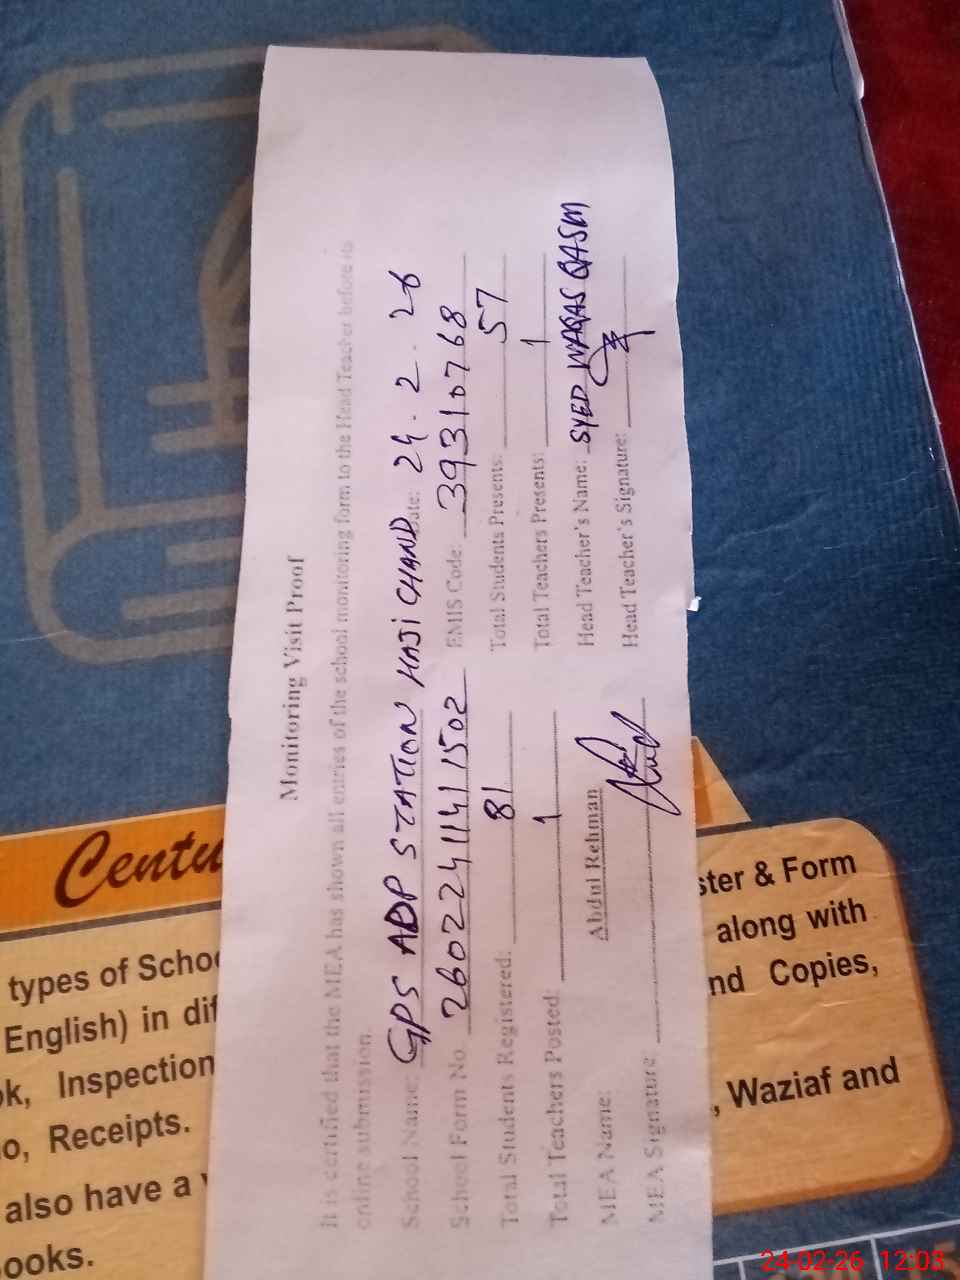 Monitoring Visit Proof
It is certified that the MEA has shown all entries of the school monitoring form to the Head Teacher before its
online submission.
School Name: GPS ADP STATION HAJI CHAND Date: 24. 2. 26
School Form No. 2602241141502 EMIS Code: 39310768
Total Students Registered: 81 Total Students Presents: 57
Total Teachers Posted: 1 Total Teachers Presents: 1
MEA Name: Abdul Rehman Head Teacher's Name: SYED WAQAS QASM
MEA Signature: Head Teacher's Signature:
Centu
types of Schoo
English) in dif
ok, Inspection
o, Receipts.
also have a
ooks.
ster & Form
along with
nd Copies,
, Waziaf and
24-02-26 12:03